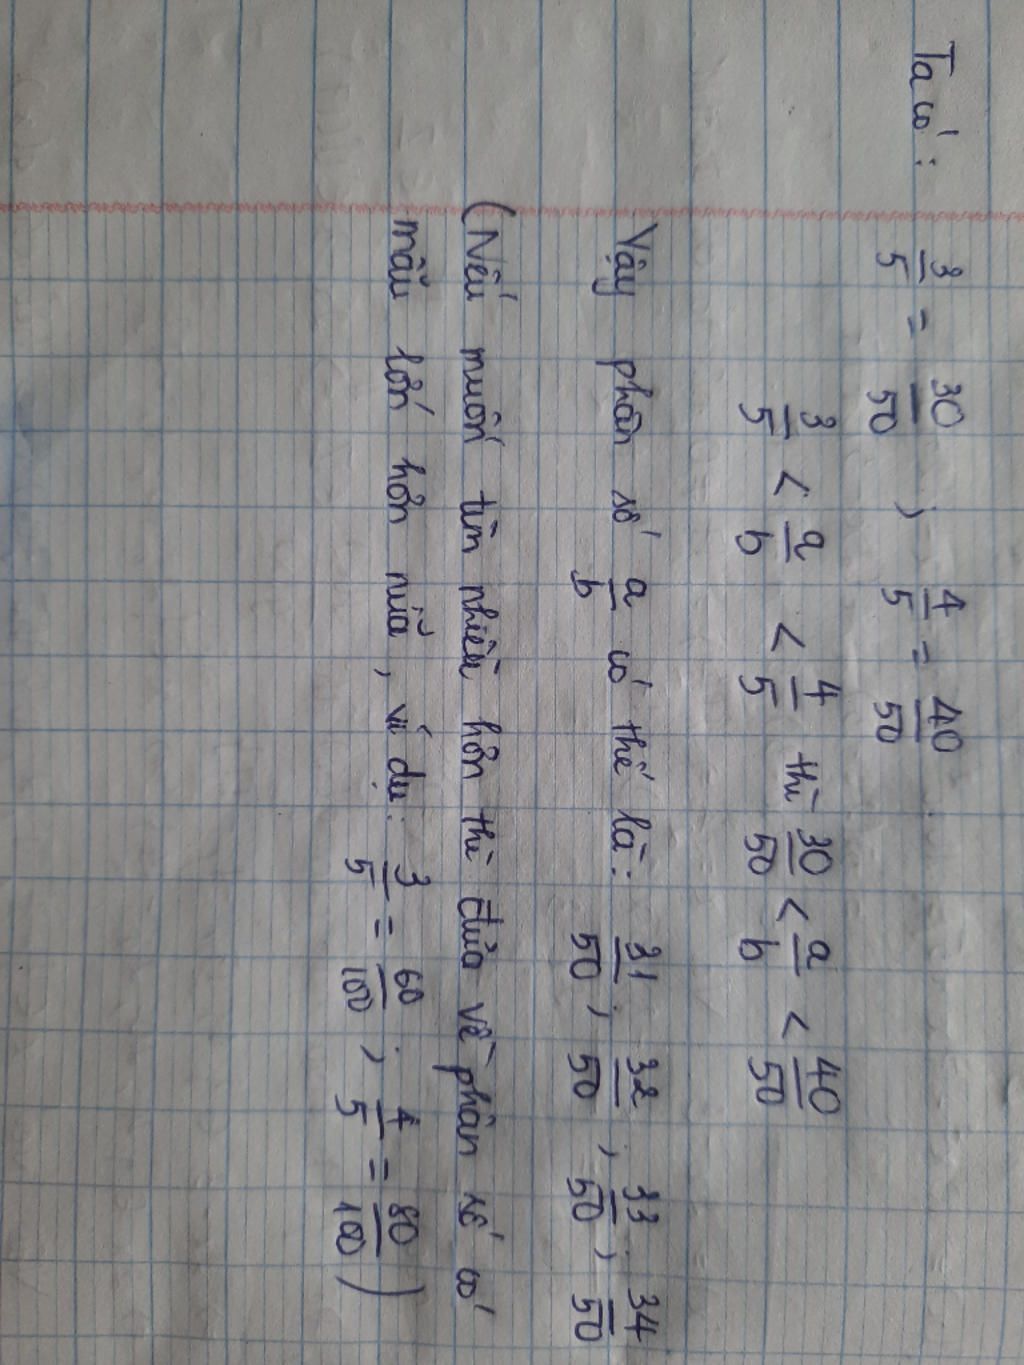 Ta có: 3/5 = 30/50 ; 4/5 = 40/50
3/5 < a/b < 4/5 thì 30/50 < a/b < 40/50
Vậy phân số a/b có thể là: 31/50 ; 32/50 ; 33/50 ; 34/50
(Nếu muốn tìm nhiều hơn thì đưa về phân số có
mẫu lớn hơn nữa, ví dụ: 3/5 = 60/100 ; 4/5 = 80/100)